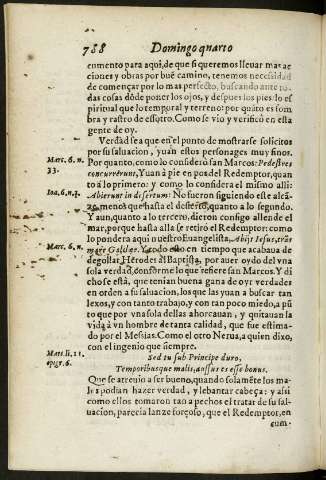 788 Domingo quarto
cumento para aqui, de que si queremos lleuar mas ac
ciones y obras por buẽ camino, tenemos necesidad
de començar por lo mas perfecto, buscando ante to
das cosas dõde poner los ojos, y despues los pies: lo es
piritual que lo temporal y terreno: por quãto es som
bra y rastro de essotro. Como se vio y verificó en esta
gente de oy.
Verdad sea que en el punto de mostrarse solicitos
por su saluacion, yuan estos personages muy finos.
Marc. 6. n. 33.
Por quanto, como lo consideró san Marcos: Pedestres
concurrerunt, Yuan à pie en pos del Redemptor, quan
Ioa. 6. n. 1.
to à lo primero: y como lo considera el mismo alli:
Abierunt in desertum: No fueron siguiendo este alcã
ze, menos que hasta el desierto, quanto a lo segundo.
Y aun, quanto a lo tercero, dieron consigo allende el
mar, porque hasta allà se retiró el Redemptor: como
Marc. 6. n.
lo pondera aqui nuestro Euangelista, Abijt Iesus, trãs
mare Galilææ. Y todo ello en tiempo que acabaua de
degollar Herodes al Baptista, por auer oydo del vna
sola verdad, cõforme lo que refiere san Marcos. Y di
cho se està, que tenian buena gana de oyr verdades
en orden a su saluacion, los que las yuan a buscar tan
lexos, y con tanto trabajo, y con tan poco miedo, a pũ
to que por vna sola dellas ahorcauan, y quitauan la
vida à vn hombre de tanta calidad, que fue estima-
do por el Mesias. Como el otro Nerua, a quien dixo,
con el ingenio que siempre.
Mart. li. 11. epigr. 6.
Sed tu sub Principe duro,
Temporibusque malis, aussus es esse bonus.
Que se atreuio a ser bueno, quando solamẽte los ma-
los podian hazer verdad, y lebantar cabeça: y assi
como ellos tomaron tan a pechos el tratar de su sal-
uacion, parecia lanze forçoso, que el Redemptor, en
cum-